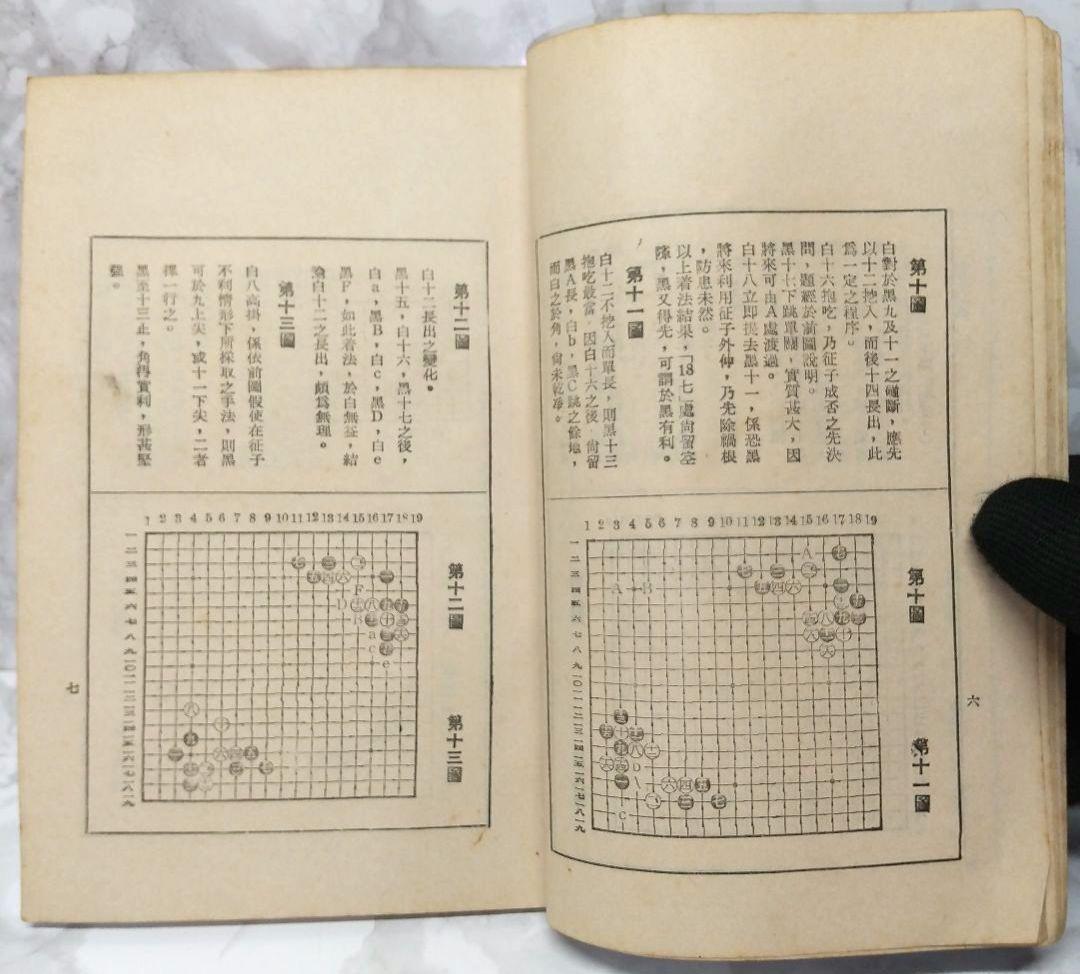 第十圖
白對於黑九及十一之碰斷，應先
以十二挖入，而後十四長出，此
爲一定之程序。
白十六抱吃，乃征子成否之先決
問題，經於前圖說明。
黑十七下跳單關，實質甚大，因
將來可由A處渡過。
白十八立卽提去黑十一，係恐黑
將來利用征子外伸，乃先除禍根
，防患未然。
以上着法結果，「18七」處尙留空
隙，黑又得先，可謂於黑有利。
第十一圖
白十二不挖入而單長，則黑十三
抱吃最當，因白十六之後，尙留
黑A長，白b，黑C跳之餘地，
而白之於角，尙未乾淨。
第十圖
第十一圖
1 2 3 4 5 6 7 8 9 10 11 12 13 14 15 16 17 18 19
六
第十二圖
白十二長出之變化。
黑十五，白十六，黑十七之後，
白a，黑B，白c，黑D，白e
黑F，如此着法，於白無益，結
論白十二之長出，頗爲無理。
第十三圖
白八高掛，係依前圖假使在征子
不利情形下所採取之手法，則黑
可於九上尖，或十一下尖，二者
擇一行之。
黑至十三止，角得實利，形甚堅
強。
第十二圖
第十三圖
1 2 3 4 5 6 7 8 9 10 11 12 13 14 15 16 17 18 19
七